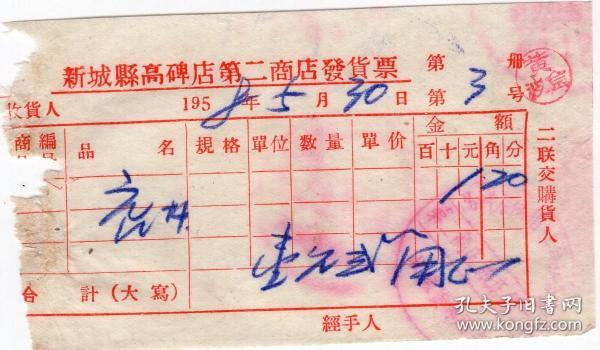 新城縣高碑店第二商店發貨票
第 册
收貨人 1958年5月30日 第3號
商 編 品 名 規格 單位 數量 單价 金 額
百 十 元 角 分
1 2 0
壹元弍角正
合 計(大寫)
經手人
二联交購貨人
孔夫子旧書网
www.kongfz.com